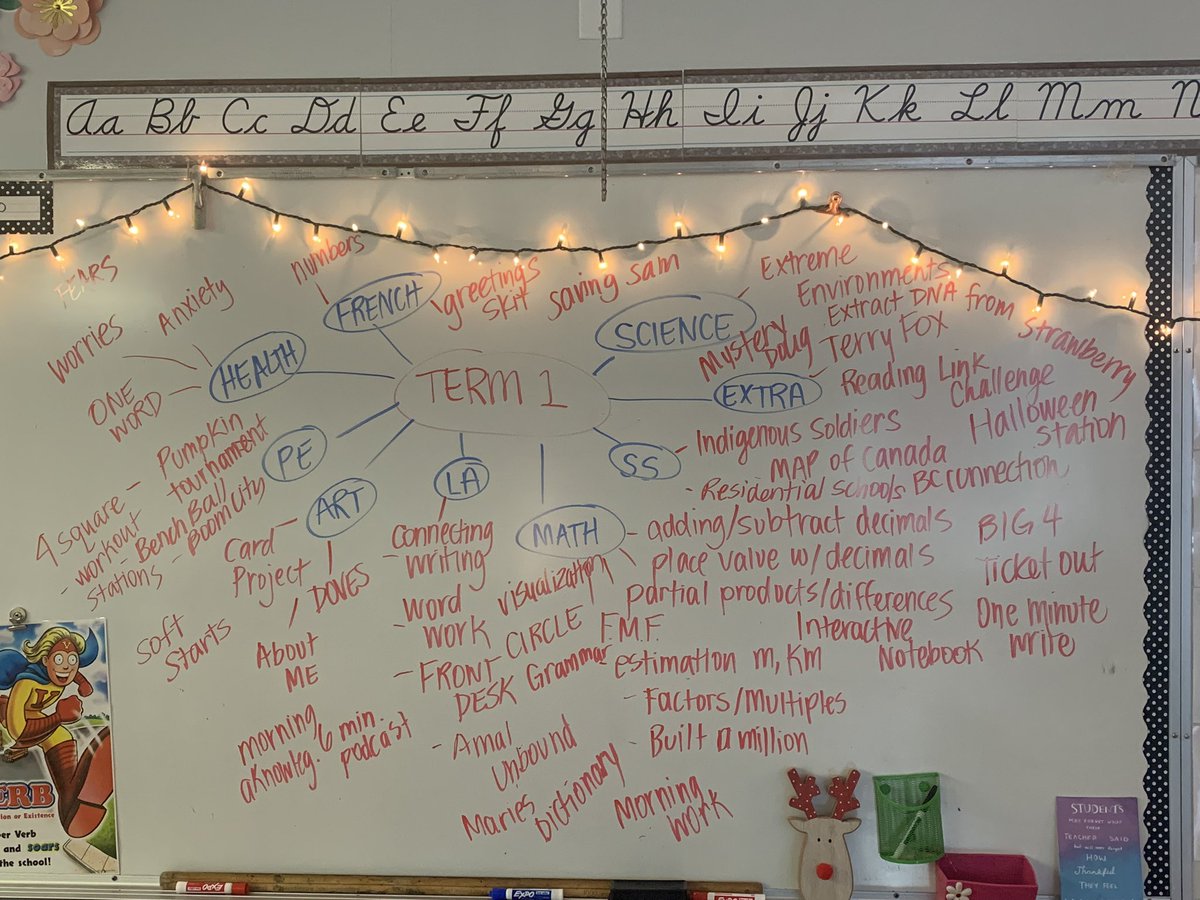 Aa Bb Cc Dd Ee Ff Gg Hh Ii Jj Kk Ll Mm N
TERM 1
FRENCH
numbers
greetings
skit
saving sam
SCIENCE
Extreme
Environments
Extract DNA from strawberry
Mystery
EXTRA
Terry Fox
Reading Link
Challenge
Halloween
station
SS
- Indigenous Soldiers
MAP of Canada
- Residential schools BC connection
HEALTH
FEARS
Anxiety
Worries
ONE
WORD
PE
Pumpkin
tournament
- Bench Ball
- Boom City
4 square -
workout
- stations
ART
Card
Project
DOVES
About
ME
soft
starts
LA
connecting
- writing
- word
work
visualization
- FRONT CIRCLE
DESK Grammar
- Amal
unbound
Maries
Dictionary
morning
6 min.
podcast
Morning
work
MATH
- adding/subtract decimals
place value w/decimals
partial products/differences
F.M.F.
estimation m, Km
- Factors/Multiples
- Built a million
Interactive
Notebook
BIG 4
Ticket out
One minute
write
ERB
tion or Existence
per Verb
and soars
the school!
EXPO
EXPO
EXPO
STUDENTS
MAY FORGET WHAT
THEIR
TEACHER SAID
but will never forget
HOW
Thankful
THEY FEEL